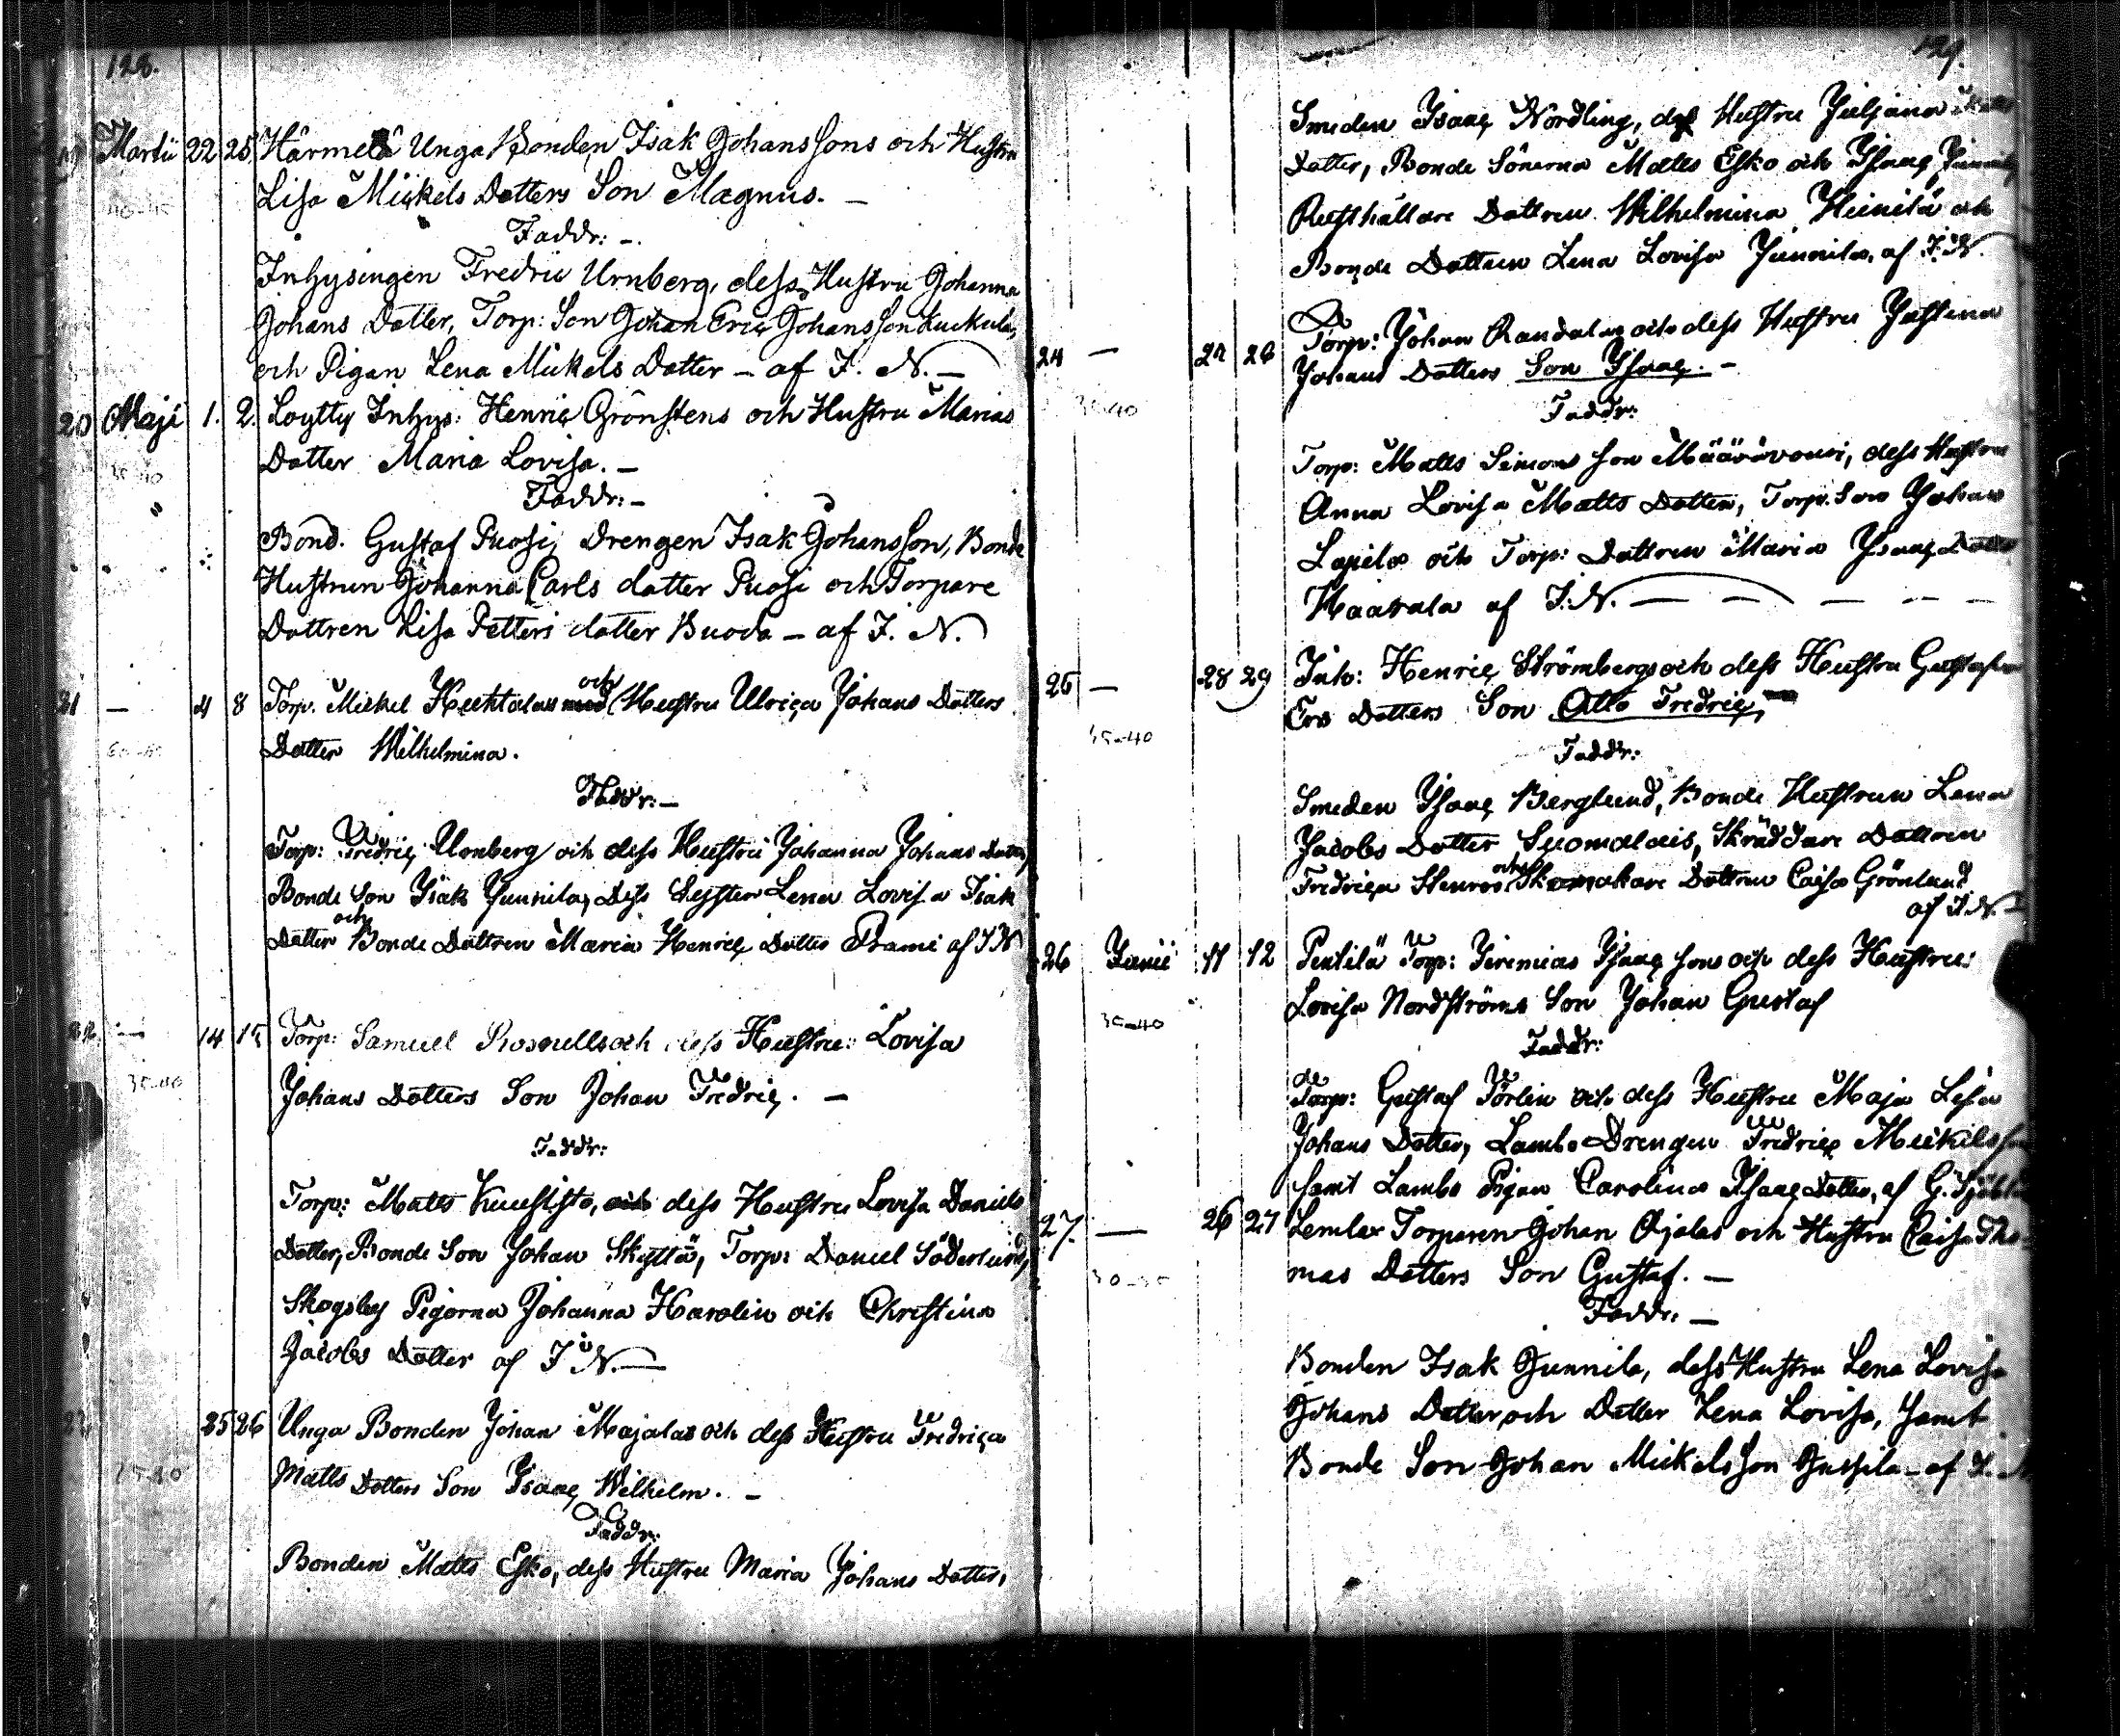 128.
19 Martii 22 25 Härmelä Unga Bonden Isak Johanssons och Hustru
Lisa Mickels Dotters Son Magnus. —
Faddr: —
Inhysingen Fredric Urnberg, dess Hustru Johanna
Johans Dotter, Torp: Son Johan Eric Johansson Kuckula,
och Pigan Lena Mickels Dotter – af I. N. —
20 Maji 1. 2. Loytty Inhys: Henric Grönstens och Hustru Marias
35-40 Dotter Maria Lovisa. —
Faddr: —
Bond. Gustaf Puosi, Drengen Isak Johansson, Bonde
Hustrun Johanna Carls dotter Puosi och Torpare
Dottren Lisa Petters dotter Buoda – af I. N.
21 — 4 8 Torp. Mickel Huhtalas och Hustru Ulrica Johans Dotters
Dotter Wilhelmina.
Faddr: —
Torp: Fredric Urnberg och dess Hustru Johanna Johans Dotter,
Bonde Son Isak Junnila, Dess Syster Lena Lovisa Isak
Dotter och Bonde Dottren Maria Henric Dotter Prami af I N
22 — 14 15 Torp: Samuel Rosnells och dess Hustru: Lovisa
35-40 Johans Dotters Son Johan Fredric. —
Faddr:
Torp: Matts Kuusisto, dess Hustru Lovisa Daniels
Dotter, Bonde Son Johan Skyttä, Torp: Daniel Söderlund,
Skogsby Pigorna Johanna Karolin och Christina
Jacobs Dotter af I N. —
25 26 Unga Bonden Johan Majalas och dess Hustru Fredrica
Matts Dotters Son Isaac Wilhelm. —
Faddr:
Bonden Matts Esko, dess Hustru Maria Johans Dotter,
129.
Smeden Isaac Nordling, dess Hustru Juliana
Dotter, Bonde Sönerna Matts Esko och Isaac Junnila
Rusthållare Dottren Wilhelmina Heinilä och
Bonde Dottren Lena Lovisa Junnila, af I. N.
24 — 24 26 Torp: Johan Randalas och dess Hustru Justina
Johans Dotters Son Isaac. —
35-40
Faddr:
Torp: Matts Simons son Määrävouri, dess Hustru
Anna Lovisa Matts Dotter, Torp. Son Johan
Lapila och Torp: Dottren Maria Isaac Dotter
Haavala af I. N. — — — — —
25 — 28 29 Inh: Henric Strömbergs och dess Hustru Gustafva
Ers Dotters Son Otto Fredric,
35-40
Faddr:
Smeden Isaac Berglund, Bonde Hustrun Lena
Jacobs Dotter Suomalais, Skräddare Dottren
Fredrica Stenroos och Skomakare Dottren Caisa Grönlund
af I N. —
26 Junii 11 12 Pentilä Torp: Jeremias Isaac sons och dess Hustru:
Lovisa Nordströms Son Johan Gustaf
35-40
Faddr:
Torp: Gustaf Törlin och dess Hustru Maja Lisa
Johans Dotter, Lambo Drengen Fredric Mickelsson
samt Lambo Pigan Carolina Isaac Dotter, af G.
27. — 26 27 Lemlax Torparen Johan Ojalas och Hustru Caisa Tho-
30-35 mas Dotters Son Gustaf. —
Faddr: —
Bonden Isak Junnila, dess Hustru Lena Lovisa
Johans Dotter och Dotter Lena Lovisa, samt
Bonde Son Johan Mickelsson Jussila – af I. N